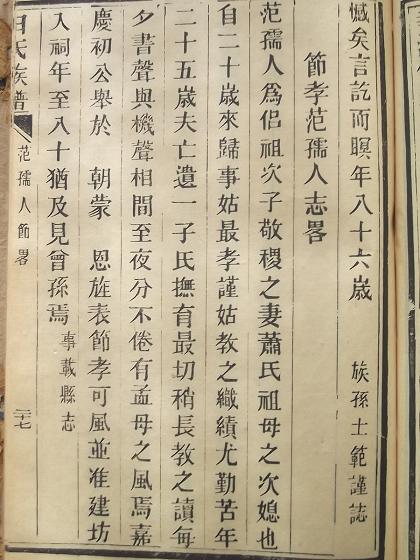 憾矣言訖而瞑年八十六歲 族孫士範謹誌
節孝范孺人志畧
范孺人為侶祖次子敬稷之妻蕭氏祖母之次媳也
自二十歲來歸事姑最孝謹姑教之織績尤勤苦年
二十五歲夫亡遺一子氏撫育最切稍長教之讀每
夕書聲與機聲相間至夜分不倦有孟母之風焉嘉
慶初公舉於 朝蒙 恩旌表節孝可風並准建坊
入祠年至八十猶及見曾孫焉 事載縣志
氏族譜 范孺人節畧 二十七